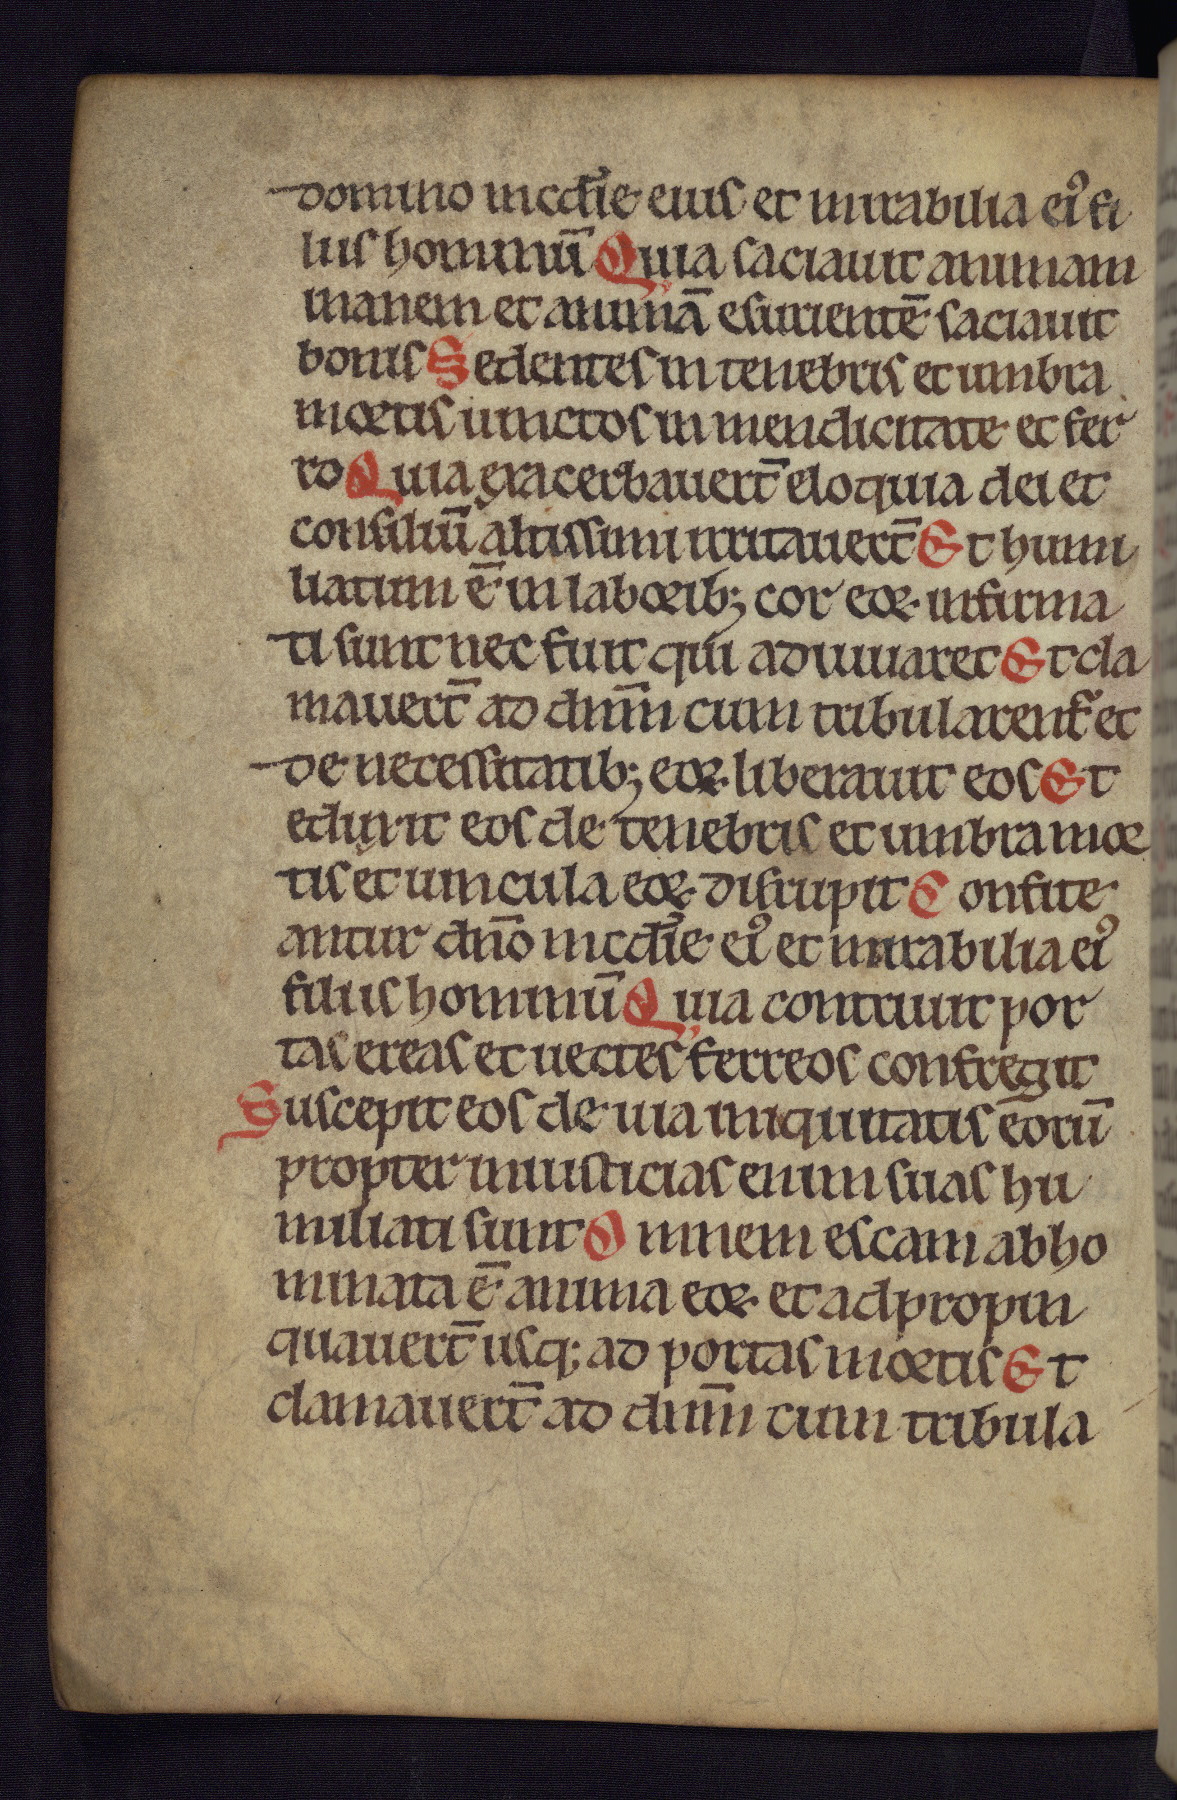 domino mcdīe eius et mirabilia ei᾽ fi
liis hominū Quia saciauit animam
inanem et animā esurientē saciauit
bonis Sedentes in tenebris et umbra
mortis uinctos in mendicitate et fer
ro Quia exacerbauert̄ eloquia dei et
consiliū altissimi irritauert̄ Et humi
liatum ē in laborib; cor eoꝝ infirma
ti sunt nec fuit qui adiuuaret Et cla
mauert̄ ad dnm̄ cum tribularent᷑ et
de necessitatib; eoꝝ liberauit eos Et
eduxit eos de tenebris et umbra mor
tis et uincula eoꝝ disrupit Confite
antur dn̄o mcdīe ei᾽ et mirabilia ei᾽
filiis hominū Quia contriuit por
tas ereas et uectes ferreos confregit
Suscepit eos de uia iniquitatis eorū
propter iniusticias enim suas hu
miliati sunt Omnem escam abho
minata ē anima eoꝝ et adpropin
quauert̄ usq; ad portas mortis Et
clamauert̄ ad dnm̄ cum tribula